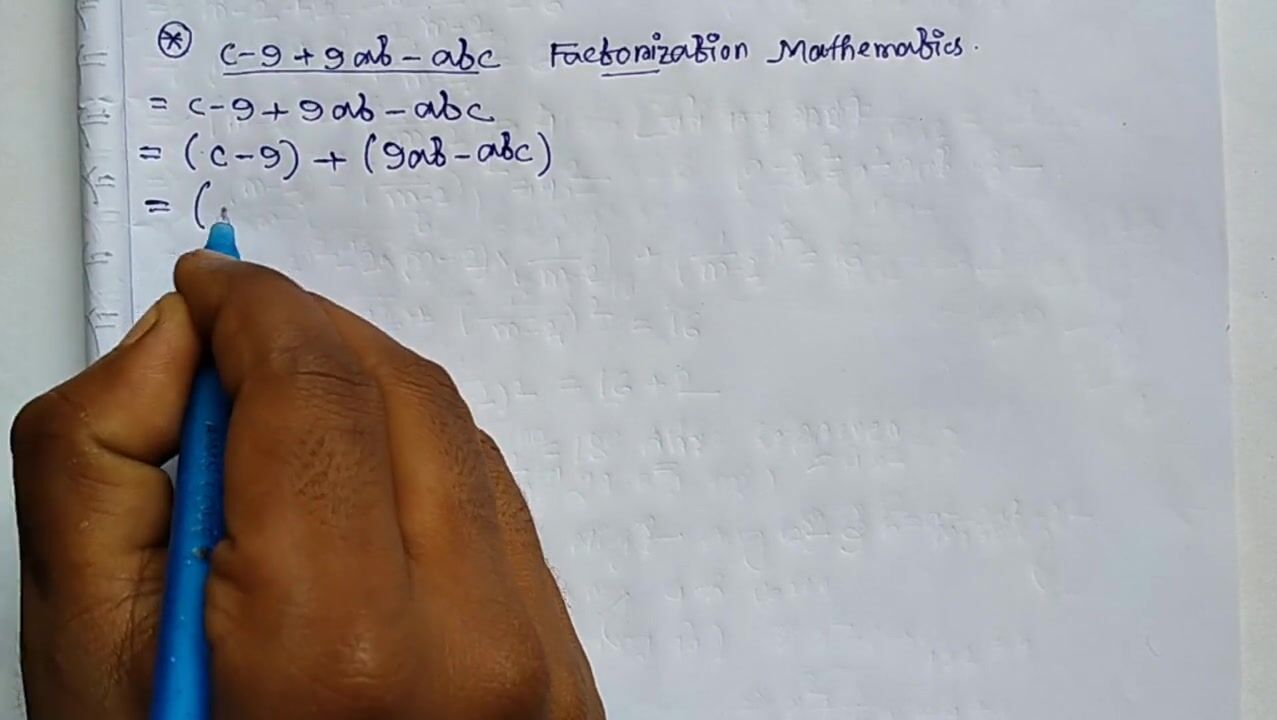 ⊛ c-9+9ab-abc Factorization Mathematics.
= c-9+9ab-abc
= (c-9)+(9ab-abc)
= (